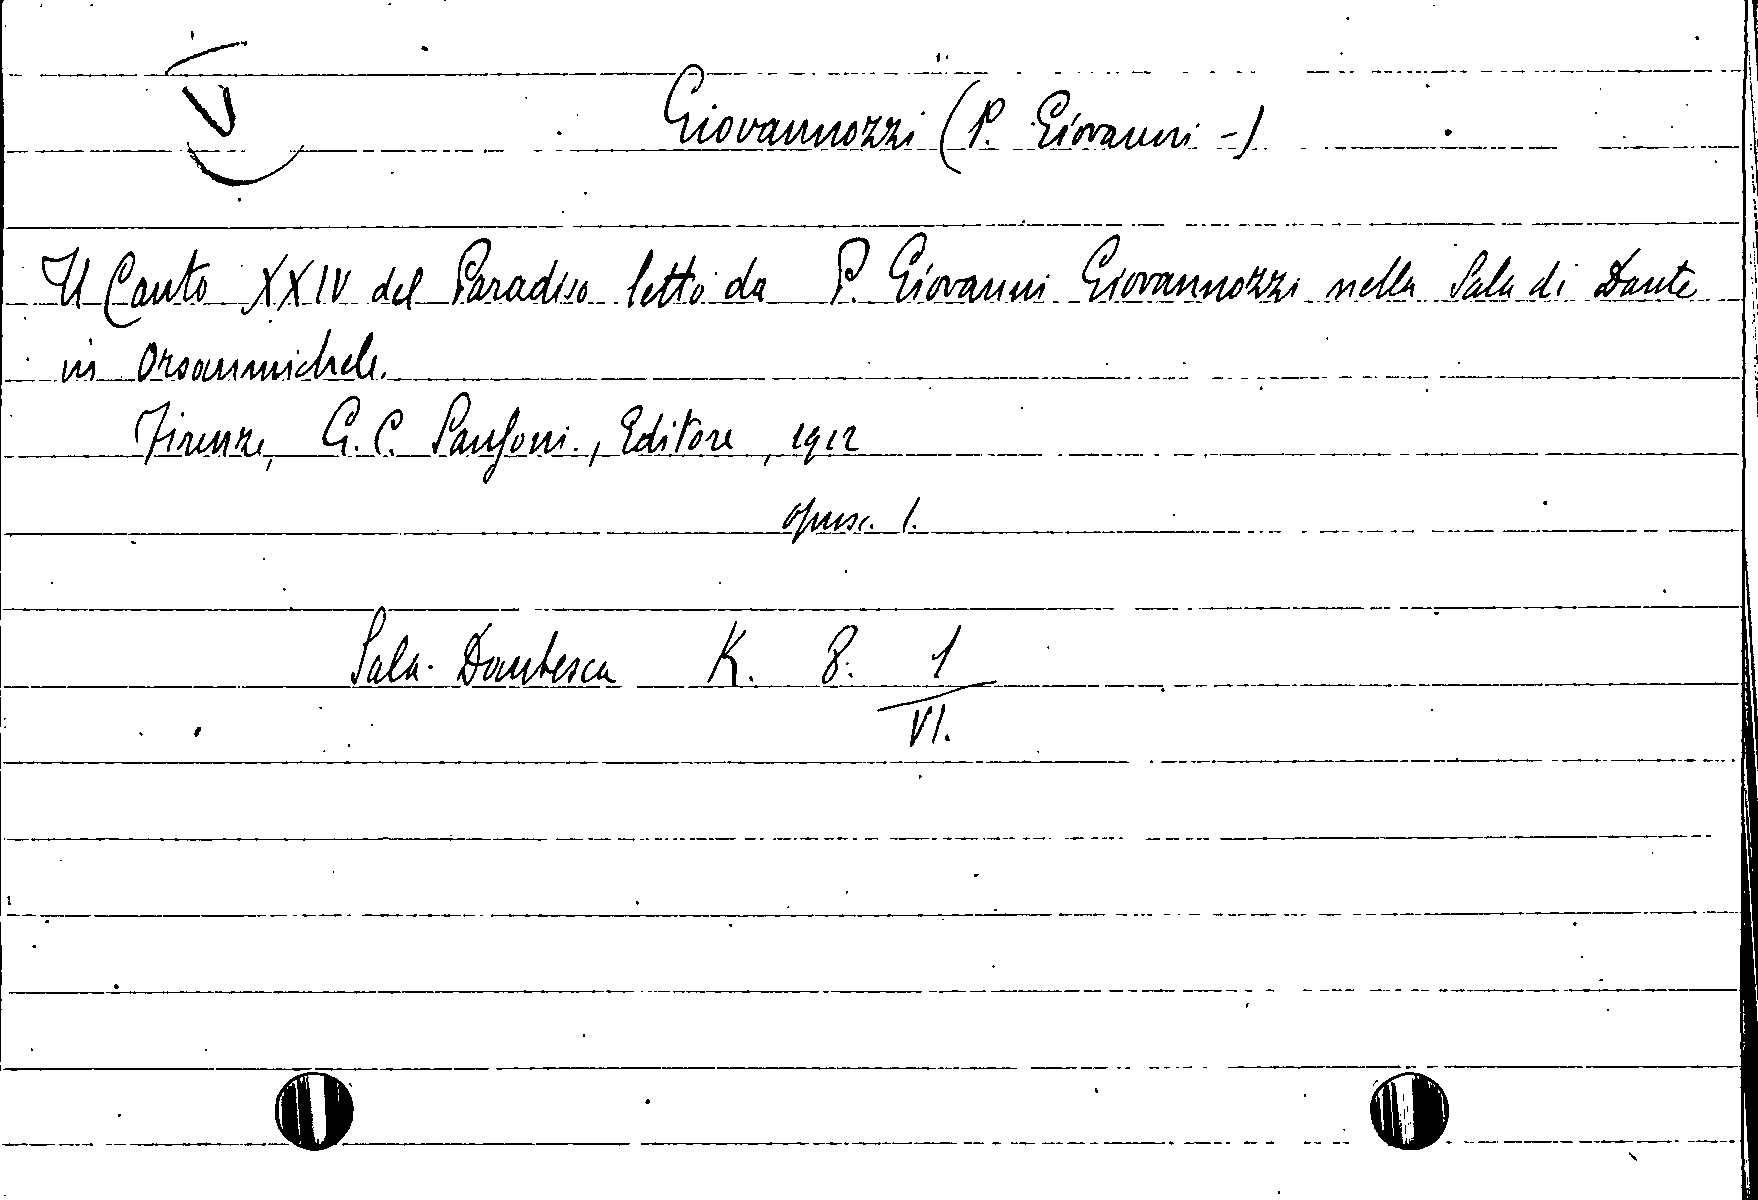 V
Giovannozzi (P. Giovanni -)
Il Canto XXIV del Paradiso letto da P. Giovanni Giovannozzi nella Sala di Dante
in Orsanmichele.
Firenze, G. C. Sansoni., Editore, 1912
opusc. 1.
Sala Dantesca K. 8. 1
VI.